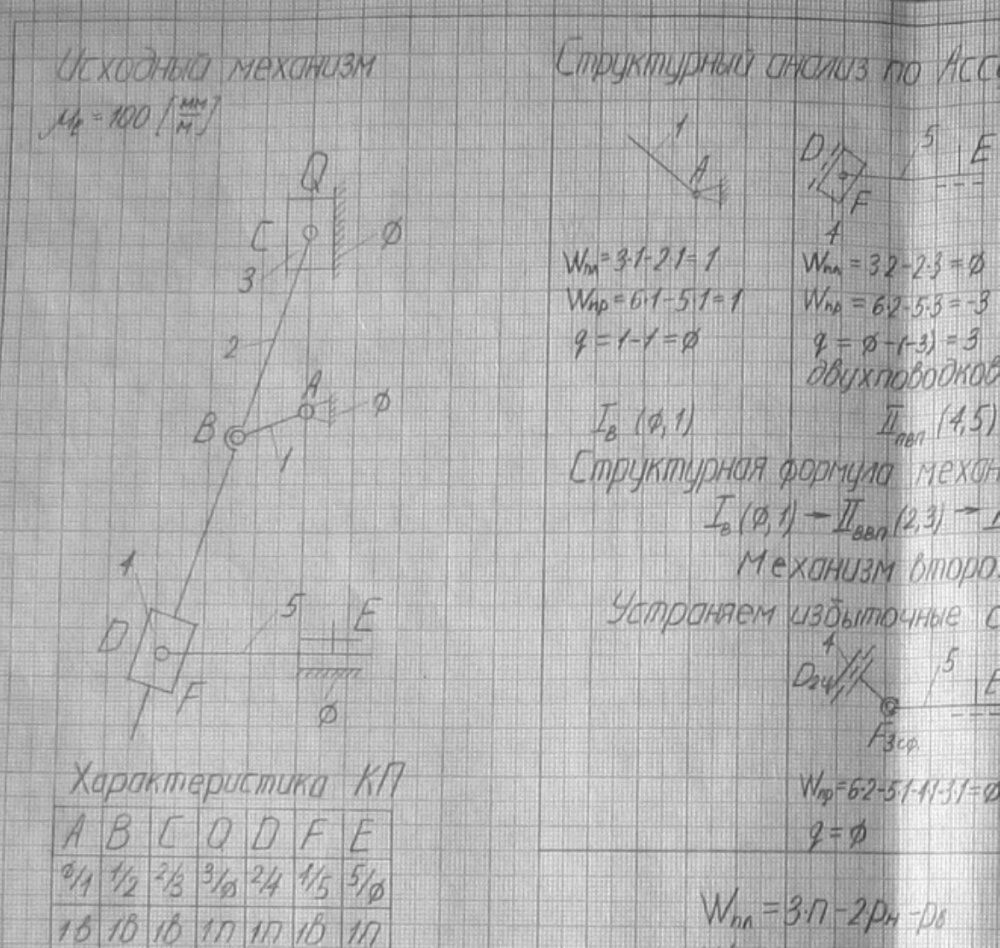 Исходный механизм
μℓ = 100 [мм/м]
Q
C
φ
3
2
A
φ
B
1
4
5
E
D
F
φ
Характеристика КП
A B C Q D F E
φ/1 1/2 2/3 3/φ 2/4 1/5 5/φ
1В 1В 1В 1П 1П 1В 1П
Структурный анализ по Асс
1
A
Wпл = 3·1-2·1 = 1
Wпр = 6·1-5·1 = 1
q = 1-1 = φ
I_В (φ,1)
D
5
E
F
4
Wпл = 3·2-2·3 = φ
Wпр = 6·2-5·3 = -3
q = φ-(-3) = 3
двухповодков
II_ПВП (4,5)
Структурная формула механ
I_В (φ,1) → II_ВВП (2,3) →
Механизм второ
Устраняем избыточные с
4
5
E
D2ц
F3сф.
Wпр = 6·2-5·1-4·1-3·1 = φ
q = φ
Wпл = 3·п - 2pн - pв